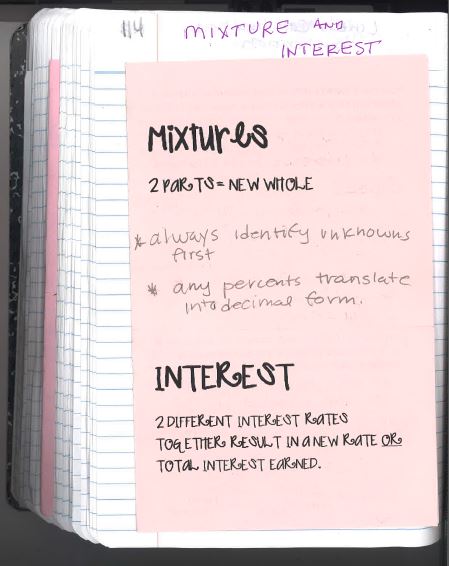 114
MIXTURE AND
INTEREST
Mixtures
2 PARTS = NEW WHOLE
* always identify unknowns
first
* any percents translate
into decimal form.
INTEREST
2 DIFFERENT INTEREST RATES
TOGETHER RESULT IN A NEW RATE OR
TOTAL INTEREST EARNED.